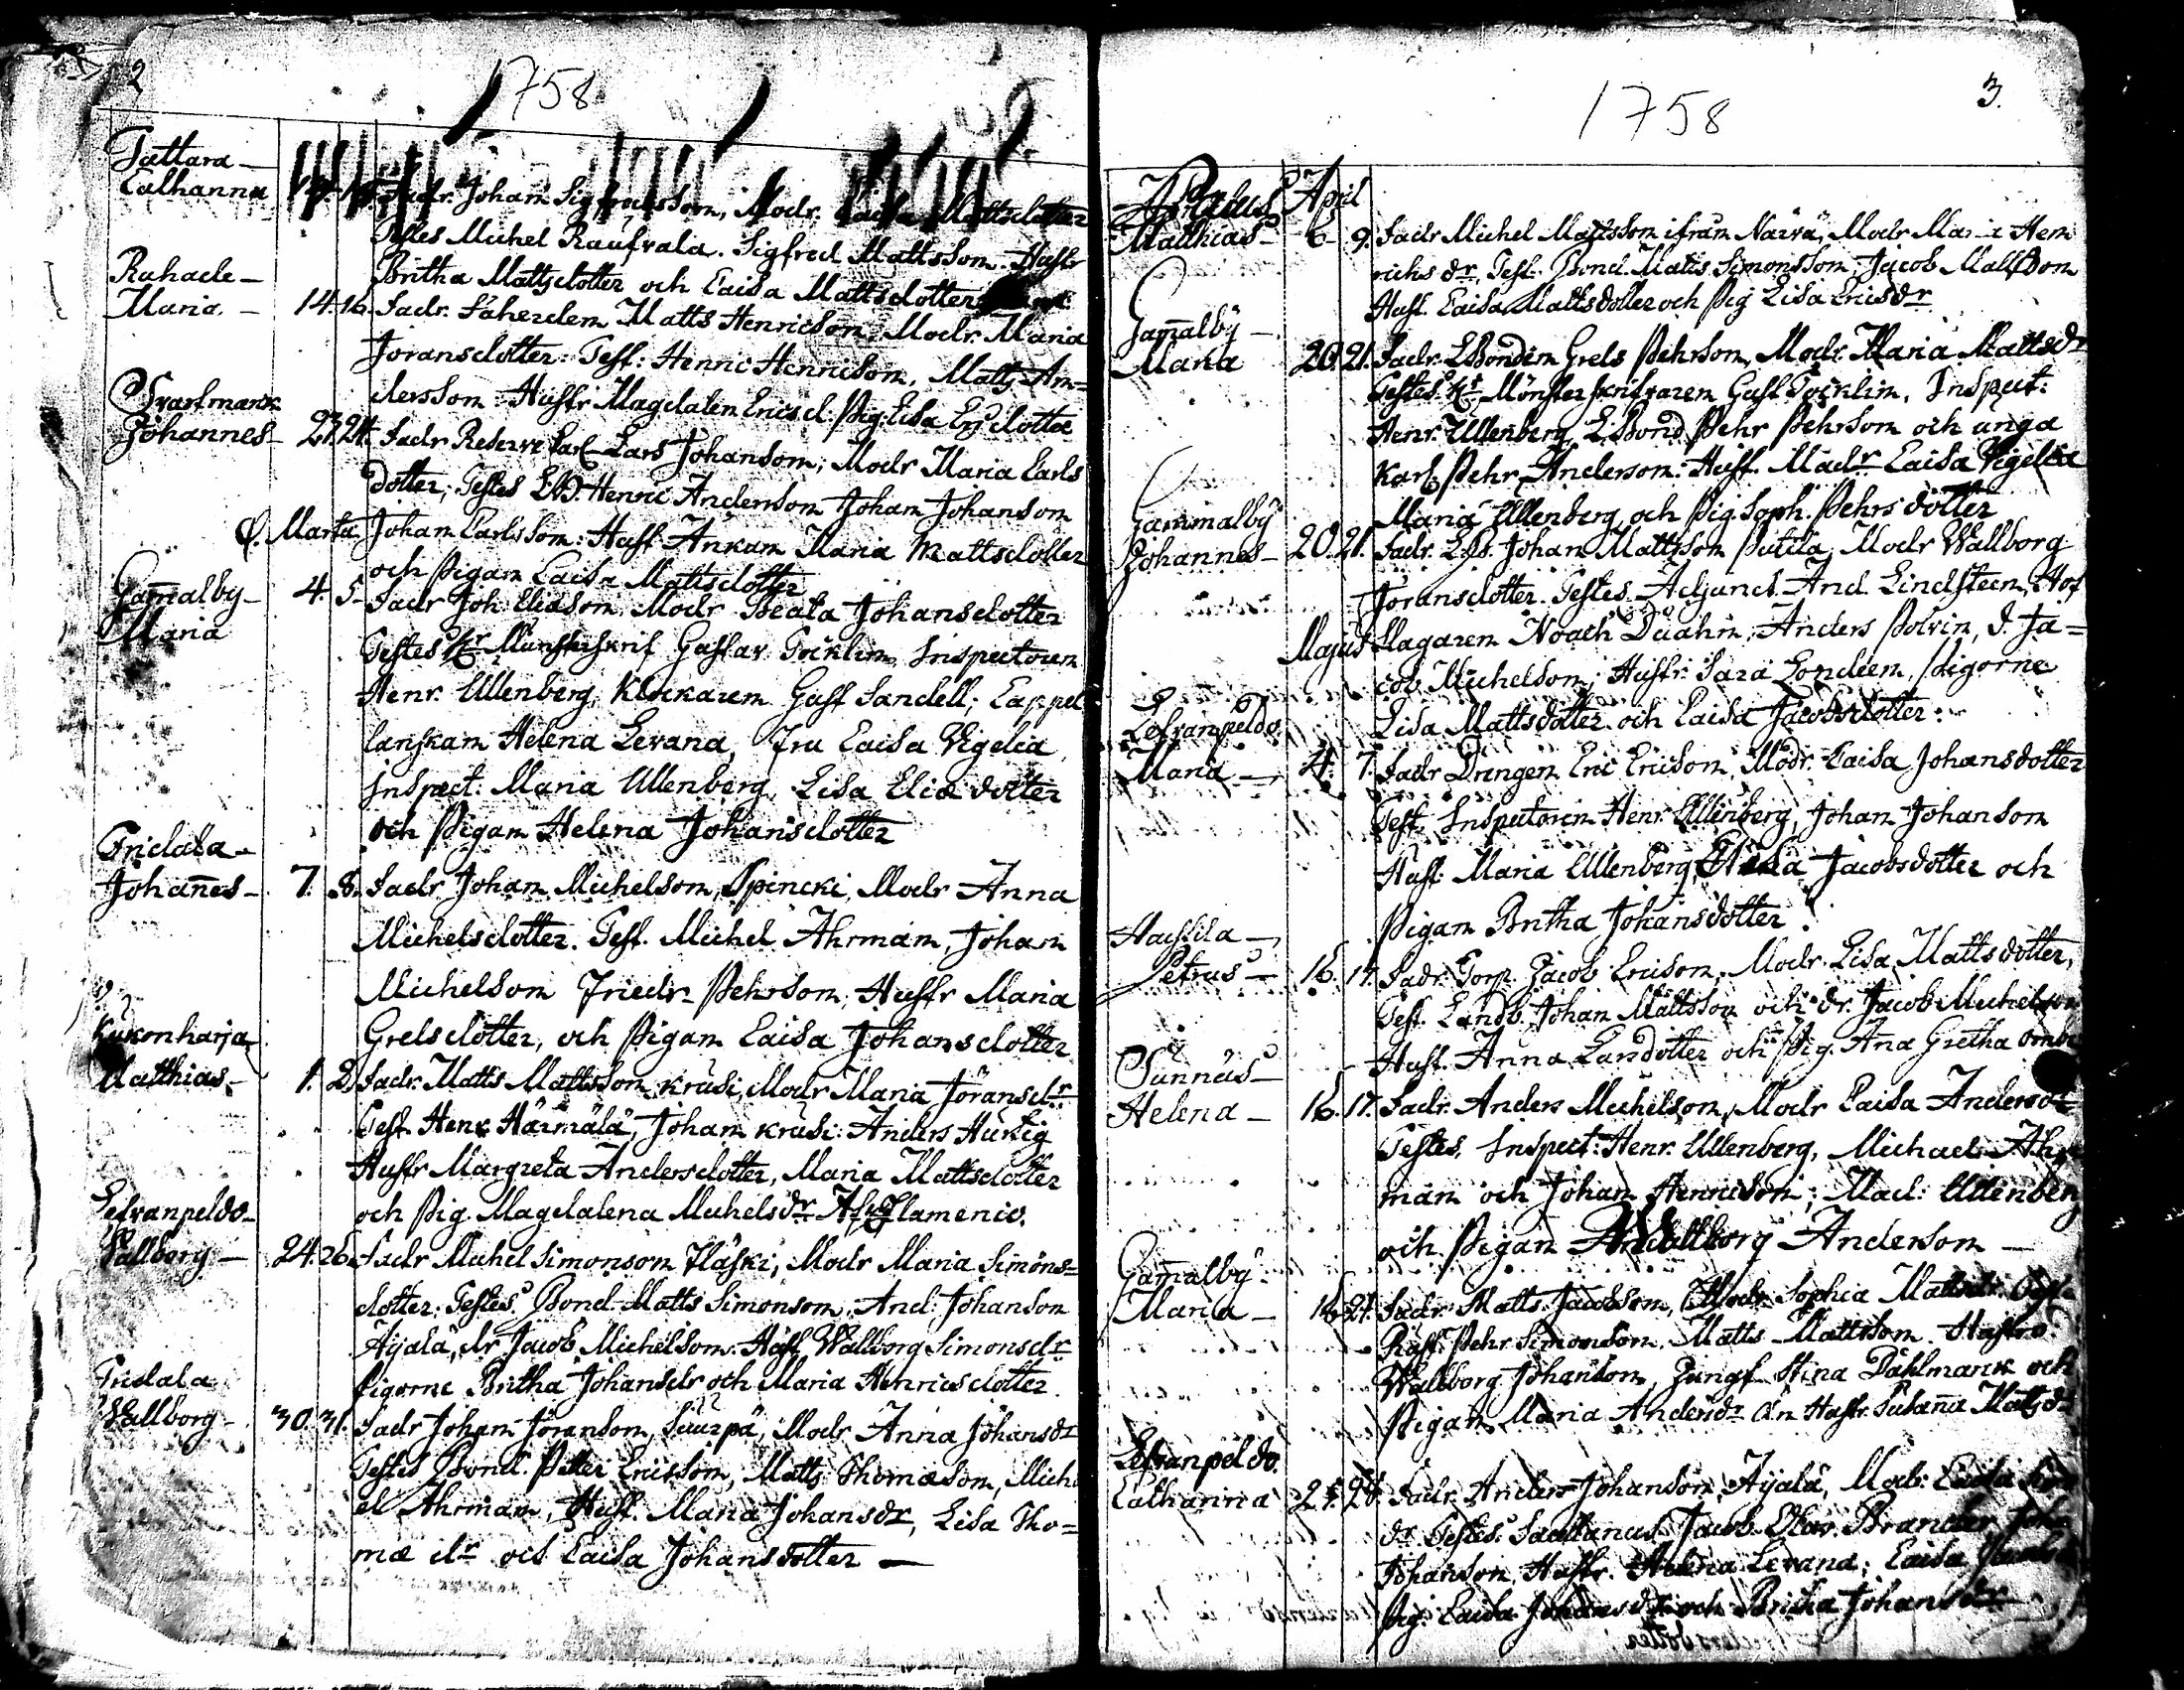 2
1758
Tattara —
Catharina
Fadr. Johan Sigfredsson, Modr. Caisa Mattsdotter
Testes Michel Raufvala. Sigfred Mattsson. Hustr
Britha Mattsdotter och Caisa Mattsdotter
Ruhade —
Maria. — 14. 16. Fadr. Matts Henricson, Modr. Maria
Joransdotter. Test: Henric Henricson, Matts An=
dersson Hustr Magdalen Ericsd. Pig. Lisa Er
Svartmark
Johannes — 23. 24. Fadr Reserve Karl Lars Johanson, Modr Maria Carls
dotter; Testes LB. Henric Anderson Johan Johanson
D. Martii. Johan Carlsson: Hust Änkan Maria Mattsdotter
och Pigan Caisa Mattsdotter
Gam̄alby — 4. 5. Fadr Joh. Eliason, Modr Beata Johansdotter
Maria
Testes Hr Munsterskrif Gustav Tocklin, Inspectoren
Henr. Ullenberg, Klockaren Gust Sandell; Cappel
lanskan Helena Levana, Fru Caisa Vigelia
Inspect. Maria Ullenberg, Lisa Eliæ dotter
och Pigan Helena Johansdotter
Fridala —
Johan̄es — 7. 8. Fadr. Johan Michelson, Spincki, Modr Anna
Michelsdotter. Test. Michel Ahrman, Johan
Michelson Friedr Pehrson, Hustr Maria
Grelsdotter, och Pigan Caisa Johansdotter
Kukonharja
Matthias — 1. 2. Fadr. Matts Mattsson Krusi, Modr Maria Joransdr
Test Henr Härmälä, Johan Krusi: Anders Hurtig
Hustr Margreta Andersdotter, Maria Mattsdotter
och Pig. Magdalena Michelsdr
Lefvanpeldo —
Vallborg — 24. 26. Fadr Michel Simonson Flaski, Modr Maria Simons=
dotter: Testes Bond. Matts Simonson, And: Johanson
Äijälä, dr Jacob Michelson. Hust Wallborg Simonsdr
Pigorne Britha Johansdr och Maria Henricsdotter.
Fridala
Wallborg — 30. 31. Fadr Johan Joranson, Suurpä, Modr Anna Johansdr
Testes Bond. Petter Ericsson, Matts Thomæson, Mich
el Ahrman, Hust. Maria Johansdr, Lisa Tho=
mæ dr och Caisa Johansdotter —
1758
3.
April
Matthias — 6 9. Fadr Michel Mattsson ifrån Närvä, Modr Maria Hen
richs dr, Test. Bond. Matts Simonsson, Jacob Mattsson
Hust. Caisa Mattsdotter och Pig Lisa Ericsdr
Gam̄alby —
Maria 20. 21. Fadr. LBonden Grels Pehrson, Modr Maria Mattsdr
Testes. Hr Mönsterskrifvaren Gust Tocklin, Inspect:
Henr. Ullenberg, LBond Pehr Pehrson och unga
Karl Pehr Anderson: Hust. Madr Caisa Vigelia
Maria Ullenberg och Pig. Soph. Pehrs dotter
Gammalby
Johannes — 20. 21. Fadr. LB. Johan Mattsson Putila, Modr Wallborg
Joransdotter. Testes. Adjunct. And. Lindsteen, Hof
Majus slagaren Noach Duahn, Anders Polvin, d. Ja=
cob Michelson, Hustr: Sara Londeen, Pigorne
Lisa Mattsdotter och Caisa Jacobsdotter.
Lefvanpeldo
Maria — 4. 7. Fadr Drengen Eric Ericson, Modr. Caisa Johansdotter
Test. Inspectoren Henr. Ullenberg, Johan Johanson
Hust: Maria Ullenberg, Jacobsdotter och
Pigan Britha Johansdotter.
Hassila —
Petrus — 16. 17. Fadr. Torp. Jacob Ericson, Modr. Lisa Mattsdotter,
Test. Landb. Johan Mattsson och dr. Jacob Michelson
Hust. Anna Larsdotter och Pig. Ana Gretha
Sunnäs —
Helena — 16. 17. Fadr. Anders Michelson, Modr Caisa Andersdr
Testes. Inspect: Henr. Ullenberg, Michael Ahr
man och Johan Henricson; Mad: Ullenberg
och Pigan Wallborg Anderson —
Gam̄alby
Maria — 16. 21. Fadr. Matts Jacobson, Modr Sophia Mattsdr
Rust. Pehr Simonson, Matts Mattsson. Hustro
Wallborg Johanson, Jungf. Stina Dahlmarck och
Pigan Maria Andersdr Hustr. Susan̄a Mattsdr
Lefvanpeldo.
Catharina Fadr. Anders Johanson, Äijälä, Modr. Caisa
dr Testes. Jacob Olav. Brander, Joh
Johanson, Hustr. Helena Levana, Caisa
Pig. Caisa Johansdr och Britha Johansdr